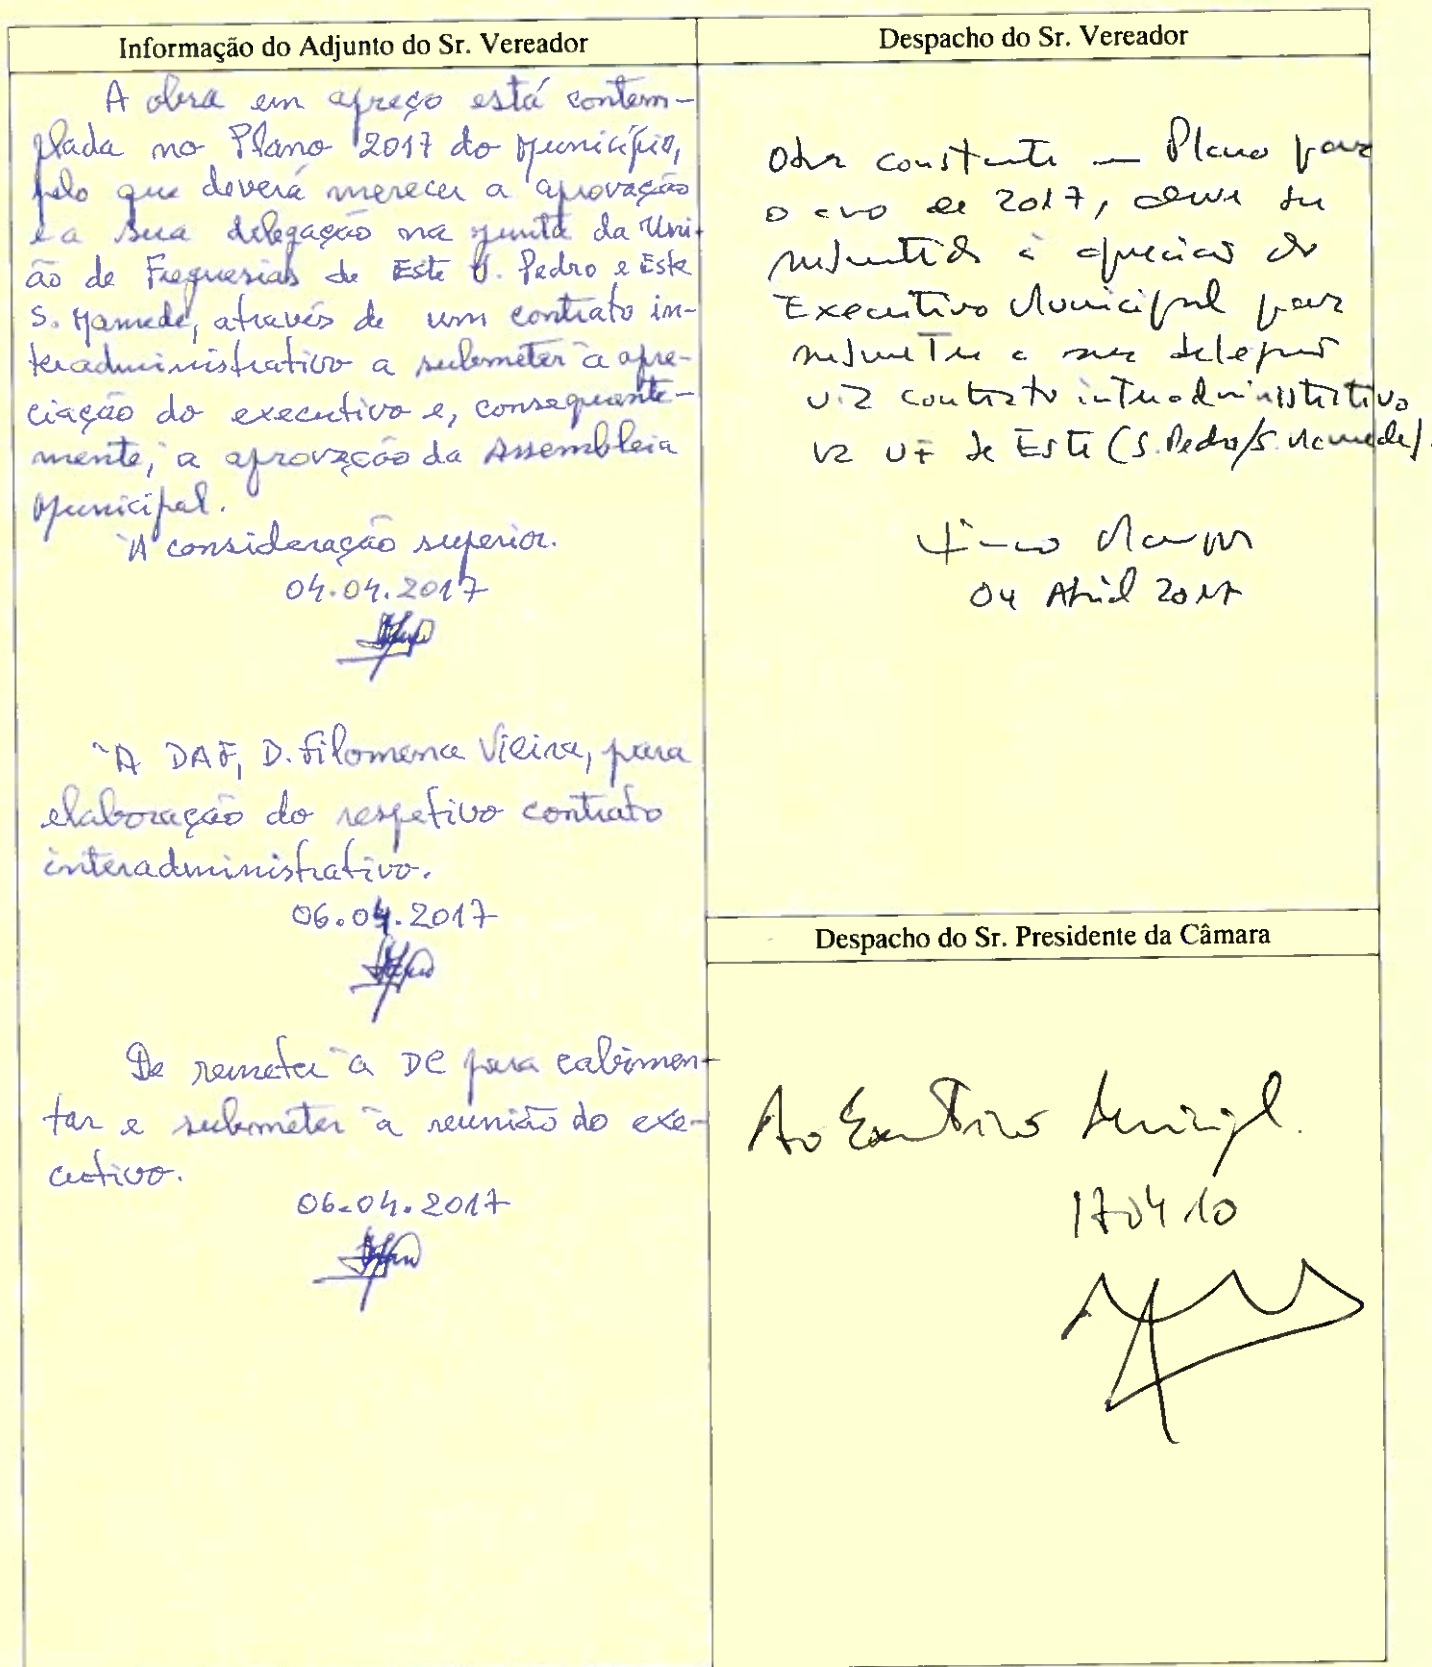 Informação do Adjunto do Sr. Vereador
A obra em apreço está contem-
plada no Plano 2017 do Município,
pelo que deverá merecer a aprovação
e a sua delegação na junta da Uni-
ão de Freguesias de Este S. Pedro e Este
S. Mamede, através de um contrato in-
teradministrativo a submeter à apre-
ciação do executivo e, consequente-
mente, à aprovação da Assembleia
Municipal.
À consideração superior.
04.04.2017
À DAF, D. Filomena Vieira, para
elaboração do respetivo contrato
interadministrativo.
06.04.2017
De remeter à DC para cabimen-
tar e submeter à reunião do exe-
cutivo.
06.04.2017
Despacho do Sr. Vereador
Obra constante Plano para
o ano de 2017, deve ser
submetida à apreciação do
Executivo Municipal para
submeter a sua delegação
via contrato interadministrativo
na UF de Este (S. Pedro/S. Mamede).
04 Abril 2017
Despacho do Sr. Presidente da Câmara
Ao Executivo Municipal.
17 04 10